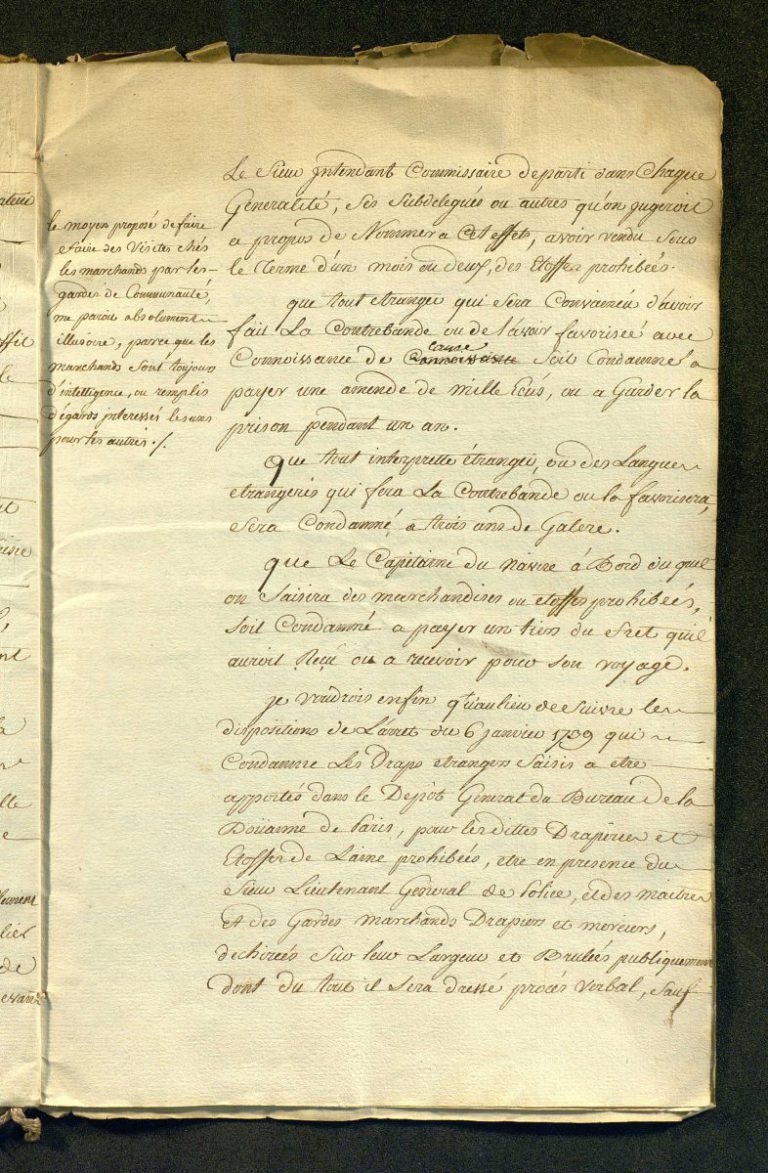 le moyen proposé de faire
efaire des Visites chés
les marchands par les
gardes de Communauté,
me paroit absolument
illusoire, parce que les
marchands sont toujours
d'intelligence, ou remplis
d'égards interessés les uns
pour les autres ./.
Le Sieur Intendant Commissaire departi dans Chaque
Generalité, ses Subdelegués ou autres qu'on jugeroit
a propos de Nommer a Cet effets, avoir vendu sous
le terme d'un mois ou deux, des Etoffes prohibées.
que tout etranger qui sera Convaincu d'avoir
fait La Contrebande ou de l'avoir favorisée avec
cause
Connoissance de Connoissance soit Condamné a
payer une amende de mille Ecús, ou a Garder la
prison pendant un an.
Que tout interprette étranger, ou des Langues
etrangeres qui fera La Contrebande ou la favorisera,
sera Condamné a trois ans de Galere.
que Le Capitaine du navire à Bord du quel
on Saisira des marchandises ou etoffes prohibées,
soit Condamné a payer un tiers du fret qu'il
auroit Reçu ou a recevoir pour son voyage.
je voudrois enfin qu'aulieu de suivre les
dispositions de L'arret du 6 janvier 1739 qui
Condamne Les Draps etrangers saisis a etre
apportés dans le Depôt General du Bureau de la
Doüanne de Paris, pour lesdittes Draperies et
Etoffes de Laine prohibées, etre en presence du
Sieur Lieutenant General de Police, et des maitres
et des Gardes marchands Drapiers et merciers,
dechirées sur leur Largeur et Brulées publiquement
dont du tout il sera dressé procés verbal, sauf